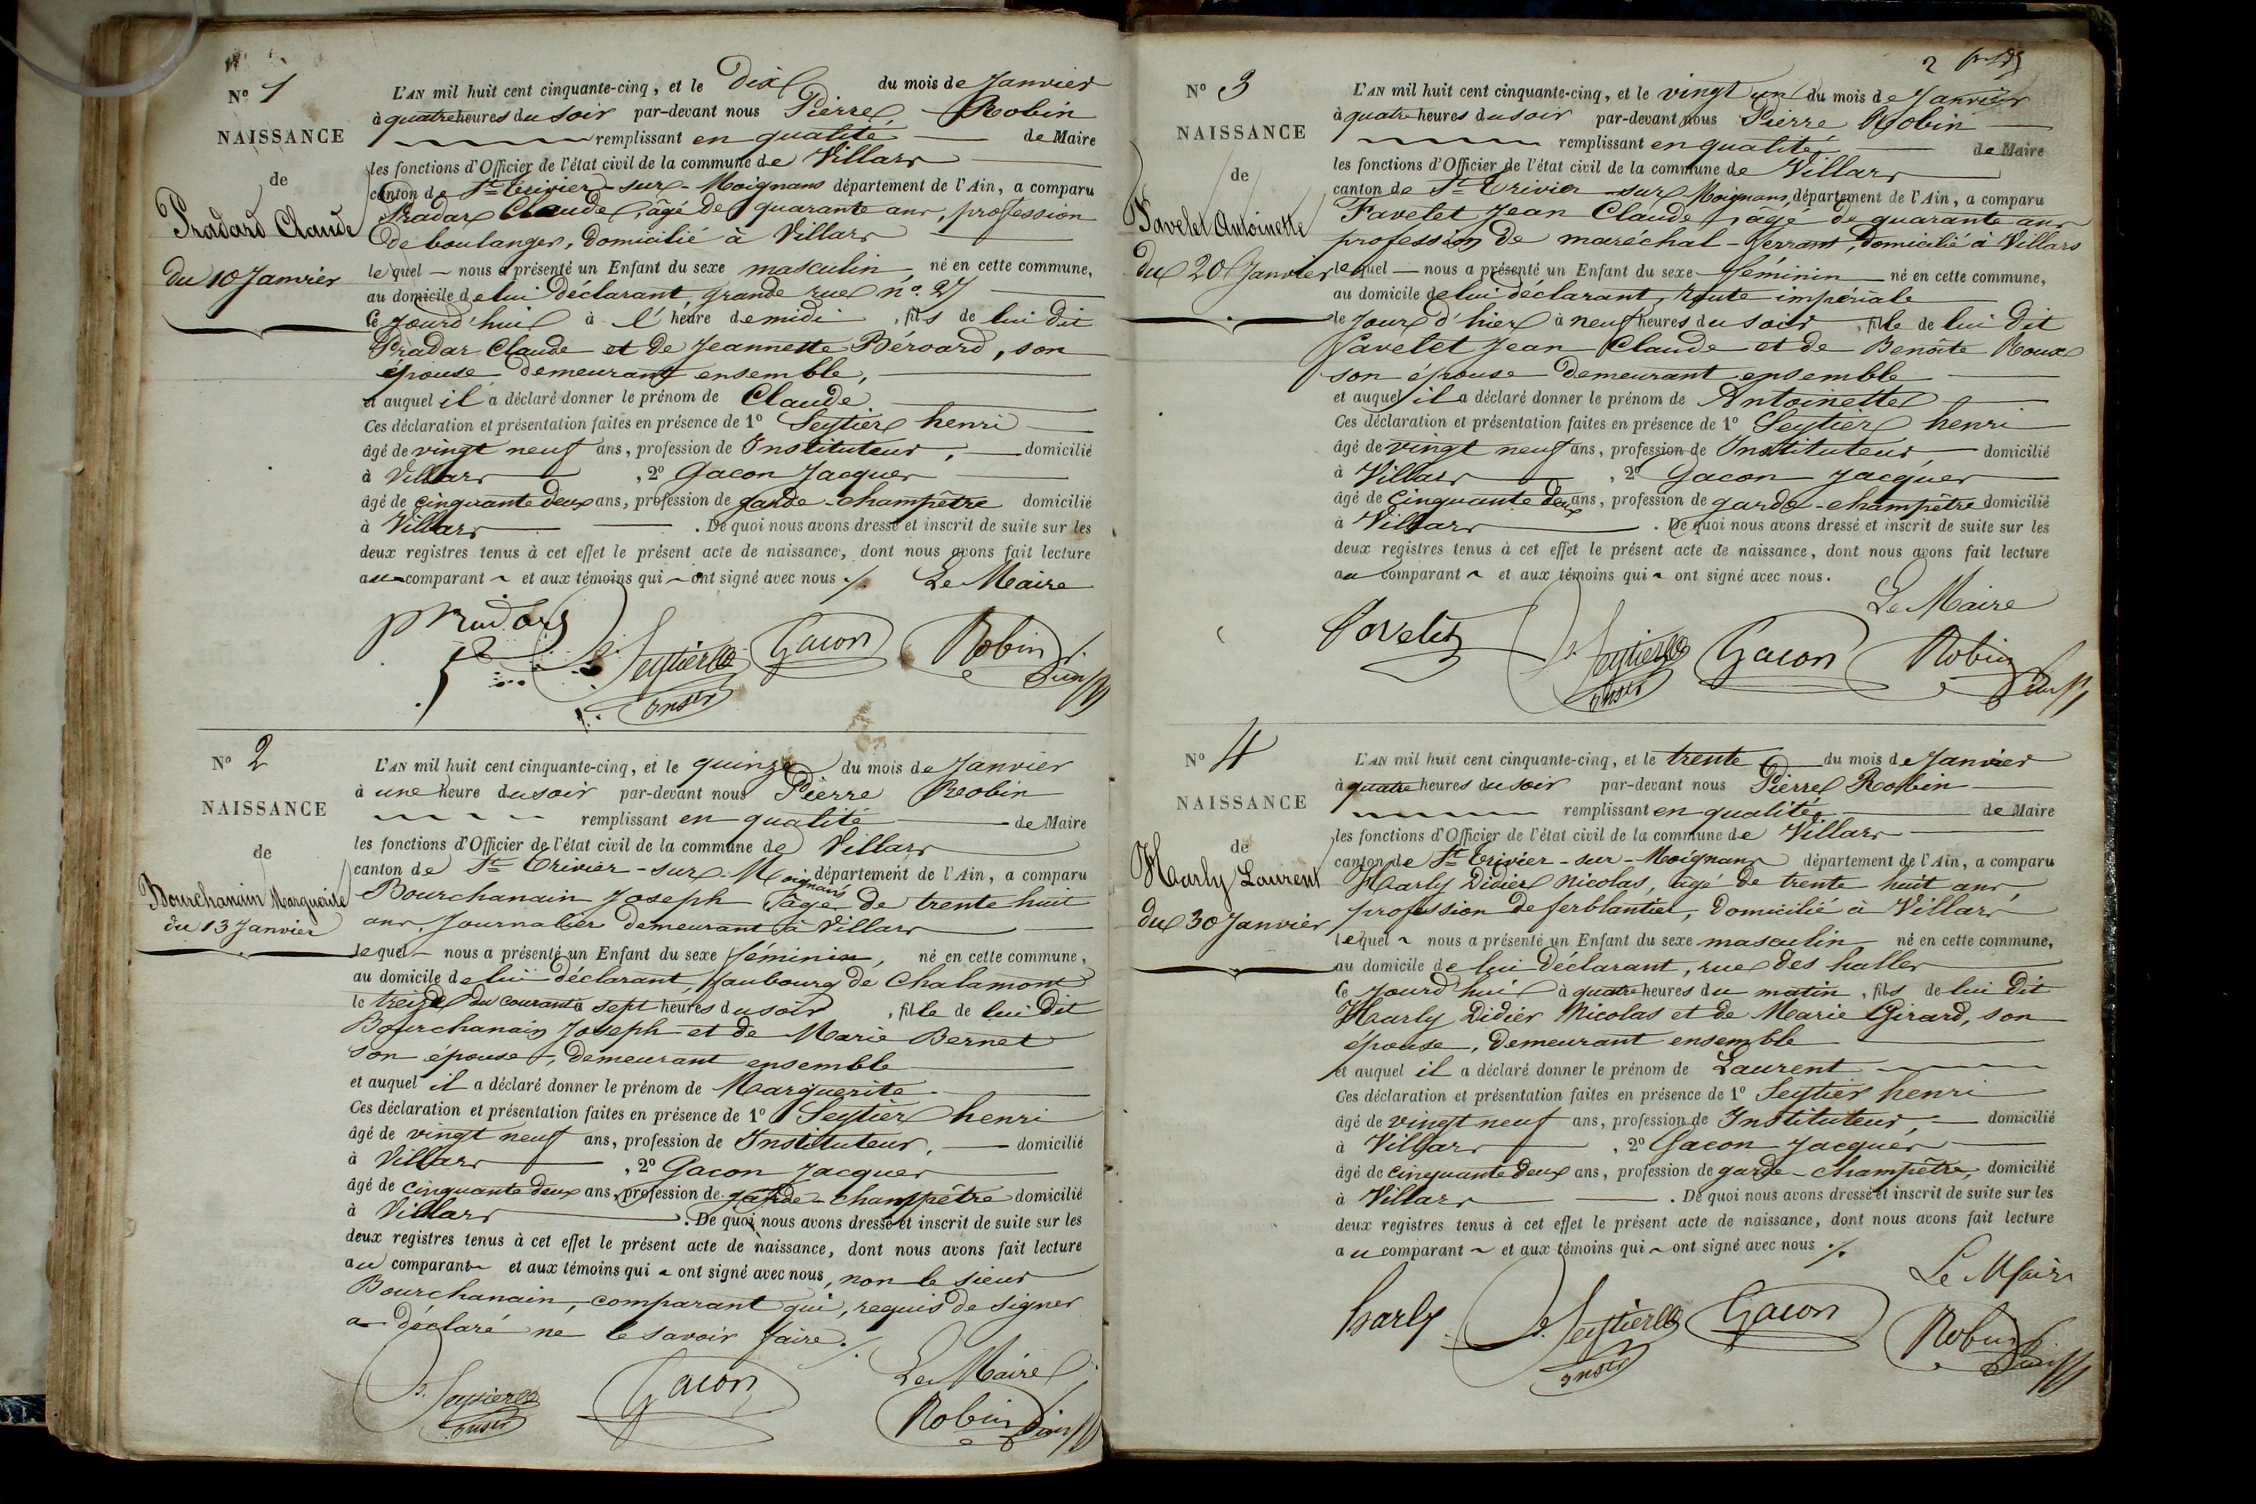 N° 1
NAISSANCE
de
Pradard Claude
du 10 Janvier
L'AN mil huit cent cinquante-cinq, et le dix du mois de Janvier
à quatre heures du soir par-devant nous Pierre Robin
remplissant en qualité de Maire
les fonctions d'Officier de l'état civil de la commune de Villars
canton de St Trivier-sur-Moignans département de l'Ain, a comparu
Pradar Claude, âgé de quarante ans, profession
de boulanger, domicilié à Villars
lequel nous a présenté un Enfant du sexe masculin, né en cette commune,
au domicile de lui déclarant, grande rue n° 27
Ce jourd'hui à l'heure de midi, fils de lui dit
Pradar Claude et de Jeannette Béroard, son
épouse demeurant ensemble,
et auquel il a déclaré donner le prénom de Claude
Ces déclaration et présentation faites en présence de 1° Seytier henri
âgé de vingt neuf ans, profession de Instituteur, domicilié
à Villars, 2° Gacon Jacques
âgé de cinquante deux ans, profession de garde-champêtre domicilié
à Villars. De quoi nous avons dressé et inscrit de suite sur les
deux registres tenus à cet effet le présent acte de naissance, dont nous avons fait lecture
au comparant et aux témoins qui ont signé avec nous ./. Le Maire
Pradard Seytier Gacon Robin
Instr
N° 2
NAISSANCE
de
Bourchanain Marguerite
du 13 Janvier
L'AN mil huit cent cinquante-cinq, et le quinze du mois de Janvier
à une heure du soir par-devant nous Pierre Robin
remplissant en qualité de Maire
les fonctions d'Officier de l'état civil de la commune de Villars
canton de St Trivier-sur-Moignans département de l'Ain, a comparu
Bourchanain Joseph, âgé de trente huit
ans, Journalier demeurant à Villars
lequel nous a présenté un Enfant du sexe féminin, né en cette commune,
au domicile de lui déclarant, faubourg de Chalamont
le treize du courant à sept heures du soir, fille de lui dit
Bourchanain Joseph et de Marie Bernet
son épouse, demeurant ensemble
et auquel il a déclaré donner le prénom de Marguerite
Ces déclaration et présentation faites en présence de 1° Seytier henri
âgé de vingt neuf ans, profession de Instituteur, domicilié
à Villars, 2° Gacon Jacques
âgé de cinquante deux ans, profession de garde-champêtre domicilié
à Villars. De quoi nous avons dressé et inscrit de suite sur les
deux registres tenus à cet effet le présent acte de naissance, dont nous avons fait lecture
au comparant et aux témoins qui ont signé avec nous, non le sieur
Bourchanain, comparant qui, requis de signer
a déclaré ne le savoir faire ./.
Le Maire
Seytier Gacon Robin
Instr
2
N° 3
NAISSANCE
de
Favelet Antoinette
du 20 Janvier
L'AN mil huit cent cinquante-cinq, et le vingt un du mois de Janvier
à quatre heures du soir par-devant nous Pierre Robin
remplissant en qualité de Maire
les fonctions d'Officier de l'état civil de la commune de Villars
canton de St Trivier-sur Moignans, département de l'Ain, a comparu
Favelet Jean Claude, âgé de quarante ans
profession de maréchal-ferrant, domicilié à Villars
lequel nous a présenté un Enfant du sexe féminin né en cette commune,
au domicile de lui déclarant, route impériale
le jour d'hier à neuf heures du soir, fille de lui dit
Favelet Jean Claude et de Benoîte Roux
son épouse demeurant ensemble
et auquel il a déclaré donner le prénom de Antoinette
Ces déclaration et présentation faites en présence de 1° Seytier henri
âgé de vingt neuf ans, profession de Instituteur domicilié
à Villars, 2° Gacon Jacques
âgé de cinquante deux ans, profession de garde-champêtre domicilié
à Villars. De quoi nous avons dressé et inscrit de suite sur les
deux registres tenus à cet effet le présent acte de naissance, dont nous avons fait lecture
au comparant et aux témoins qui ont signé avec nous.
Le Maire
Favelet Seytier Gacon Robin
Instr
N° 4
NAISSANCE
de
Harly Laurent
du 30 Janvier
L'AN mil huit cent cinquante-cinq, et le trente du mois de Janvier
à quatre heures du soir par-devant nous Pierre Robin
remplissant en qualité de Maire
les fonctions d'Officier de l'état civil de la commune de Villars
canton de St Trivier-sur-Moignans département de l'Ain, a comparu
Harly Didier Nicolas, âgé de trente huit ans
profession de ferblantier, domicilié à Villars
lequel nous a présenté un Enfant du sexe masculin né en cette commune,
au domicile de lui déclarant, rue des halles
Ce jourd'hui à quatre heures du matin, fils de lui dit
Harly Didier Nicolas et de Marie Girard, son
épouse, demeurant ensemble
et auquel il a déclaré donner le prénom de Laurent
Ces déclaration et présentation faites en présence de 1° Seytier henri
âgé de vingt neuf ans, profession de Instituteur, domicilié
à Villars, 2° Gacon Jacques
âgé de cinquante deux ans, profession de garde-champêtre, domicilié
à Villars. De quoi nous avons dressé et inscrit de suite sur les
deux registres tenus à cet effet le présent acte de naissance, dont nous avons fait lecture
au comparant et aux témoins qui ont signé avec nous ./.
Le Maire
harly Seytier Gacon Robin
Instr